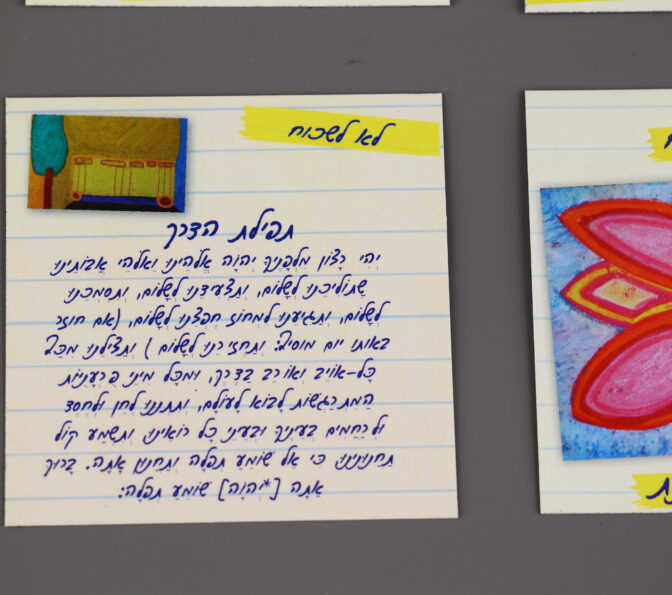 לא לשכוח
תפילת הדרך
יְהִי רָצוֹן מִלְּפָנֶיךָ יְהוָה אֱלֹהֵינוּ וֵאלֹהֵי אֲבוֹתֵינוּ
שֶׁתּוֹלִיכֵנוּ לְשָׁלוֹם, וְתַצְעִידֵנוּ לְשָׁלוֹם, וְתִסְמְכֵנוּ
לְשָׁלוֹם, וְתַגִּיעֵנוּ לִמְחוֹז חֶפְצֵנוּ לְשָׁלוֹם, (אם חוזר
באותו יום מוסיף: וְתַחְזִירֵנוּ לְשָׁלוֹם) וְתַצִּילֵנוּ מִכַּף
כָּל-אוֹיֵב וְאוֹרֵב בַּדֶּרֶךְ, וּמִכָּל מִינֵי פֻּרְעָנֻיּוֹת
הַמִּתְרַגְּשׁוֹת לָבוֹא לָעוֹלָם, וְתִתְּנֵנוּ לְחֵן וּלְחֶסֶד
וּלְרַחֲמִים בְּעֵינֶיךָ וּבְעֵינֵי כָל רוֹאֵינוּ וְתִשְׁמַע קוֹל
תַּחֲנוּנֵינוּ כִּי אֵל שׁוֹמֵעַ תְּפִלָּה וְתַחֲנוּן אַתָּה. בָּרוּךְ
אַתָּה [יְהוָה] שׁוֹמֵעַ תְּפִלָּה: